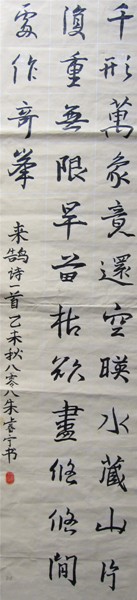 千形萬象竟還空暎水藏山片
復重無限旱苗枯欲盡悠悠閒
處作奇峯
来鹄诗一首乙未秋八零八朱宁书